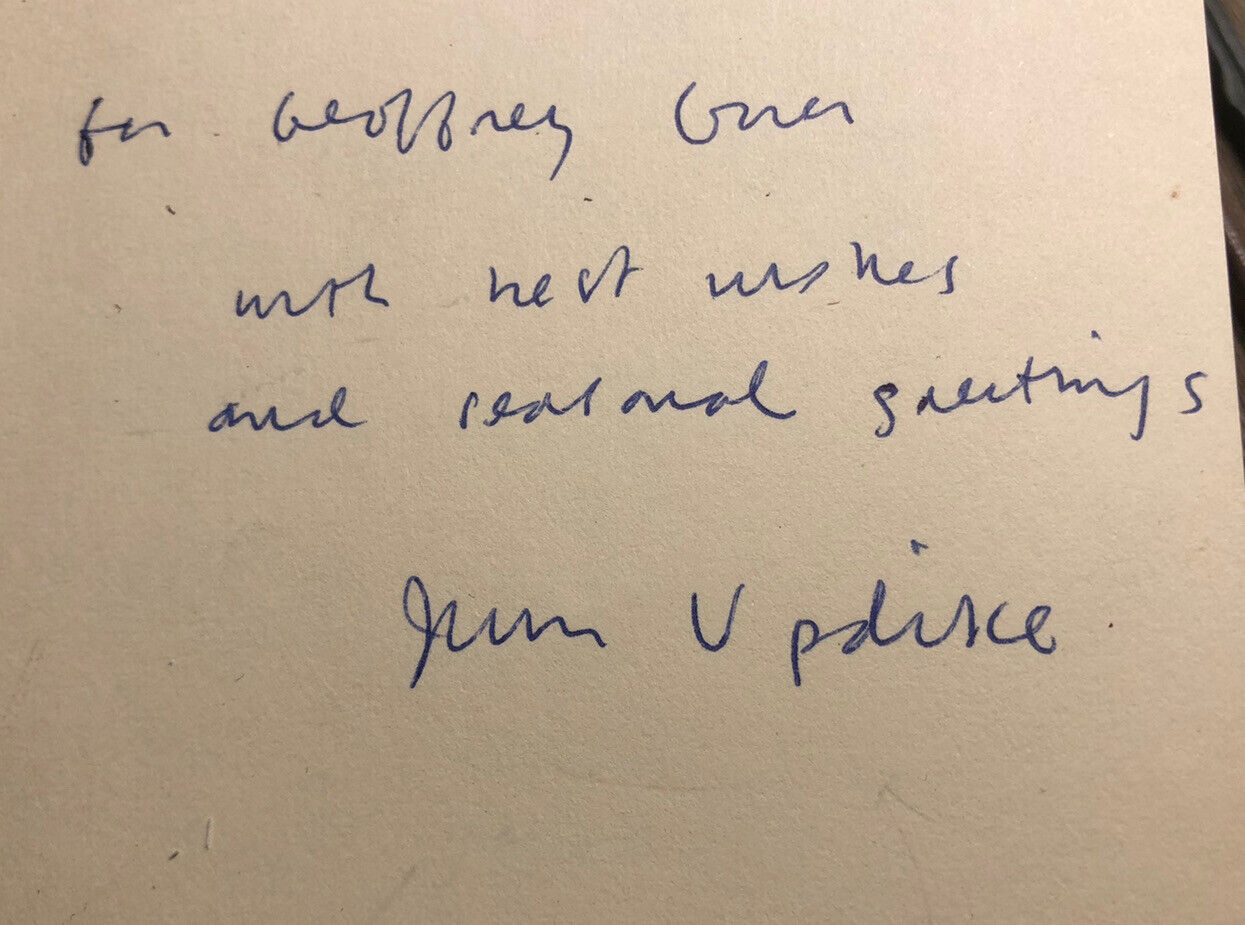 for Geoffrey
with best wishes
and seasonal greetings
John Updike